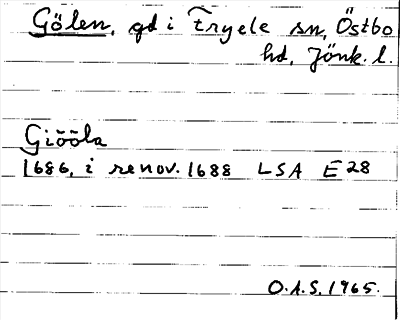 Gölen, gd i Tryele sn, Östbo
hd, Jönk. l.
Giööla
1686, i renov. 1688 LSA E 28
O.A.S. 1965.